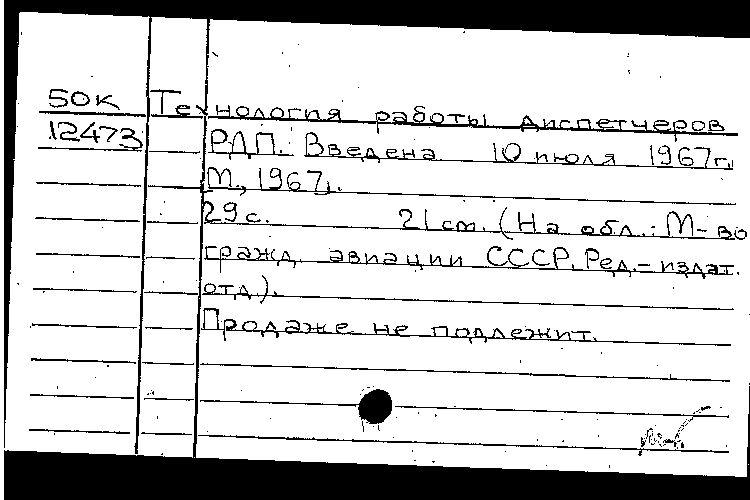 50к Технология работы диспетчеров
12473 РДП. Введена 10 июля 1967г.
М., 1967г.
29с. 21см. (На обл.: М-во
гражд. авиации СССР. Ред.-издат.
отд.).
Продаже не подлежит.